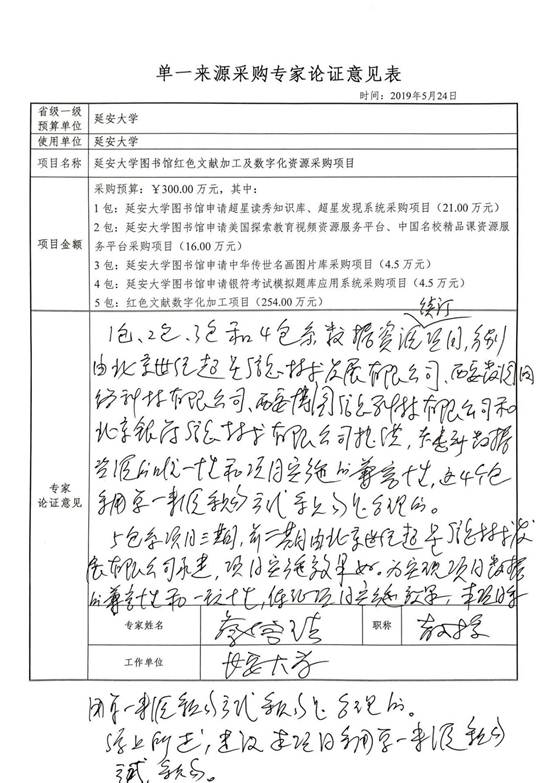 单一来源采购专家论证意见表
时间：2019年5月24日
省级一级预算单位 延安大学
使用单位 延安大学
项目名称 延安大学图书馆红色文献加工及数字化资源采购项目
项目金额
采购预算：￥300.00万元，其中：
1包：延安大学图书馆申请超星读秀知识库、超星发现系统采购项目（21.00万元）
2包：延安大学图书馆申请美国探索教育视频资源服务平台、中国名校精品课资源服
务平台采购项目（16.00万元）
3包：延安大学图书馆申请中华传世名画图片库采购项目（4.5万元）
4包：延安大学图书馆申请银符考试模拟题库应用系统采购项目（4.5万元）
5包：红色文献数字化加工项目（254.00万元）
专家论证意见
续订
1包、2包、3包和4包系数据资源项目，分别
由北京世纪超星信息技术发展有限公司、西安数图网
络科技有限公司、西安博图信息科技有限公司和
北京银符信息技术有限公司提供，考虑到数据
资源的唯一性和项目实施的兼容性，这4个包
采用单一来源采购方式采购是合理的。
5包系项目三期，前二期由北京世纪超星信息技术发
展有限公司承建，项目实施效果好。为实现项目数据
的兼容性和一致性，保证项目实施效果，本项目采
专家姓名 职称 教授
工作单位 西安大学
用单一来源采购方式采购是合理的。
综上所述，建议本项目采用单一来源采购
方式采购。